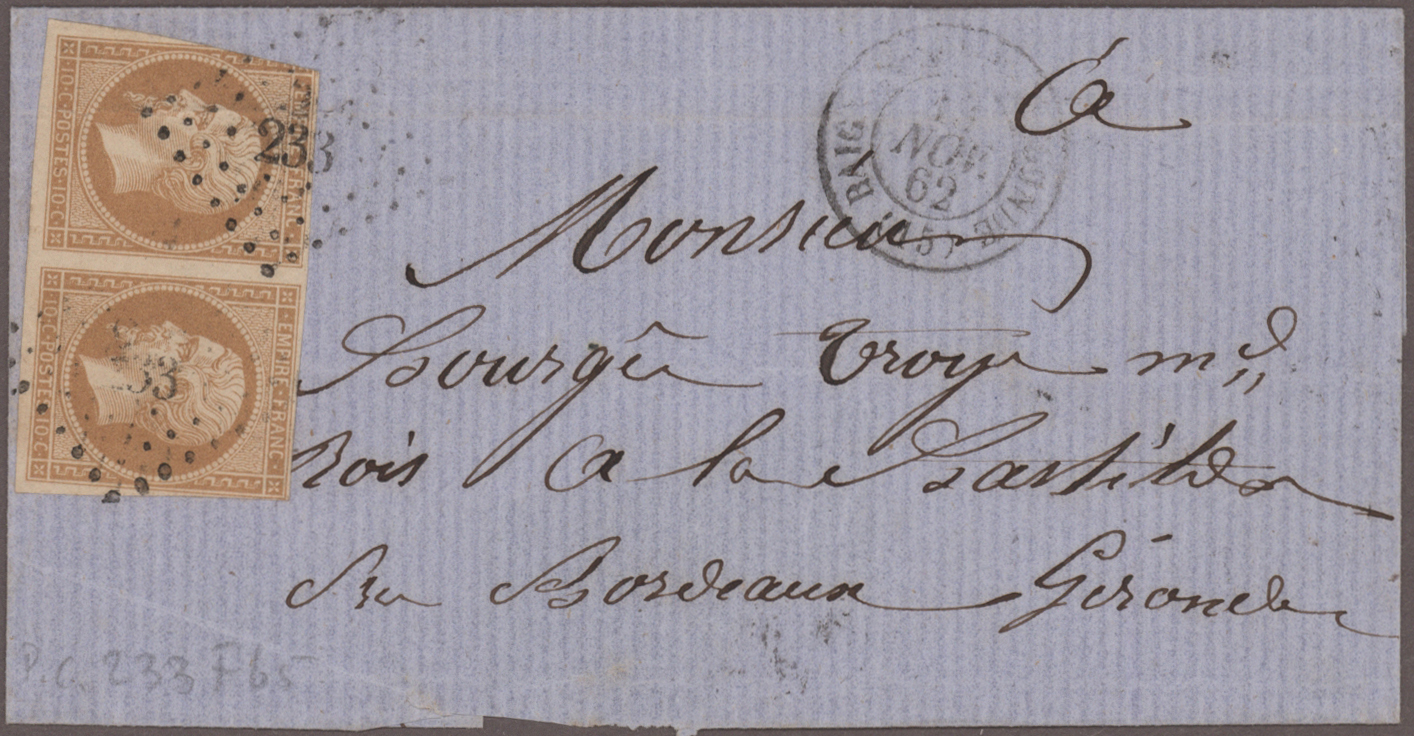 EMPIRE FRANC
10·C·POSTES·10·C
233
233
EMPIRE·FRANC·
10·C·POSTES·10·C
233
BAIG
NOV.
62
à
Monsieur
Bourgès troye md
Bois a la Bastide
Sur Bordeaux Gironde
P.C. 233 F65